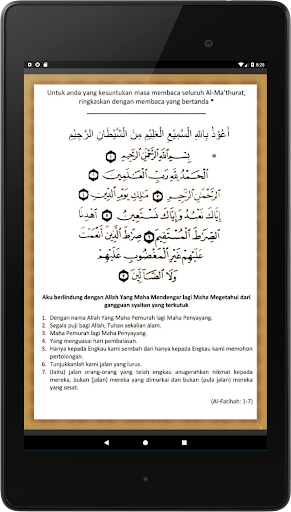 8:25
Untuk anda yang kesuntukan masa membaca seluruh Al-Ma'thurat,
ringkaskan dengan membaca yang bertanda *
أَعُوْذُ بِاللهِ السَّمِيْعِ الْعَلِيْمِ مِنَ الشَّيْطَانِ الرَّجِيْمِ
بِسْمِ ٱللَّهِ ٱلرَّحْمَٰنِ ٱلرَّحِيمِ ١ *
ٱلْحَمْدُ لِلَّهِ رَبِّ ٱلْعَٰلَمِينَ ٢
ٱلرَّحْمَٰنِ ٱلرَّحِيمِ ٣ مَٰلِكِ يَوْمِ ٱلدِّينِ ٤
إِيَّاكَ نَعْبُدُ وَإِيَّاكَ نَسْتَعِينُ ٥ ٱهْدِنَا
ٱلصِّرَٰطَ ٱلْمُسْتَقِيمَ ٦ صِرَٰطَ ٱلَّذِينَ أَنْعَمْتَ
عَلَيْهِمْ غَيْرِ ٱلْمَغْضُوبِ عَلَيْهِمْ
وَلَا ٱلضَّآلِّينَ ٧
Aku berlindung dengan Allah Yang Maha Mendengar lagi Maha Megetahui dari
gangguan syaitan yang terkutuk
1. Dengan nama Allah Yang Maha Pemurah lagi Maha Penyayang.
2. Segala puji bagi Allah, Tuhan sekalian alam.
3. Maha Pemurah lagi Maha Penyayang.
4. Yang menguasai hari pembalasan.
5. Hanya kepada Engkau kami sembah dan hanya kepada Engkau kami memohon
pertolongan.
6. Tunjukkanlah kami jalan yang lurus.
7. (Iaitu) jalan orang-orang yang telah engkau anugerahkan nikmat kepada
mereka, bukan (jalan) mereka yang dimurkai dan bukan (pula jalan) mereka
yang sesat.
(Al-Fatihah: 1-7)